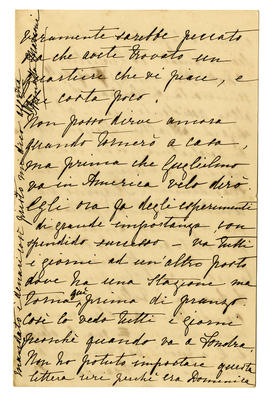 veramente sarebbe peccato
ora che avete trovato un
quartiere che vi piace, e
che costa poco.
Non posso dirve ancora
quando tornerò a casa,
ma prima che Guglielmo
va in America velo dirò.
Egli ora fa degli esperimenti
di grande importanza con
splendido successo - va tutti
i giorni ad un'altro porto
dove ha una Stazione ma
torna qui prima di pranzo
così lo vedo tutti i giorni
meno che quando va a Londra.
Non ho potuto impostare questa
lettera ieri perchè era Domenica
mandato i denari così presto ma dico